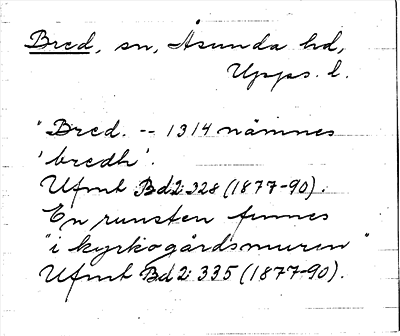 Bred, sn, Åsunda hd,
Upps. l.
"Bred. -- 1314 nämnes
'bredh'.
Ufmt Bd 2: 228 (1877-90).
En runsten finnes
"i kyrkogårdsmuren"
Ufmt Bd 2: 335 (1877-90).